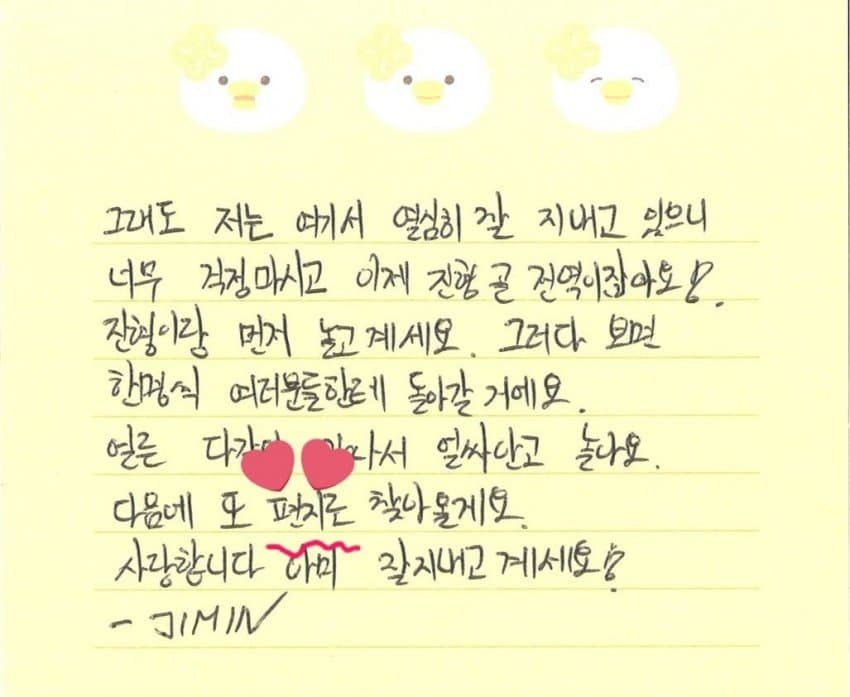 그래도 저는 여기서 열심히 잘 지내고 있으니
너무 걱정마시고 이제 진형 곧 전역이잖아요!
진형이랑 먼저 놀고 계세요. 그러다 보면
한명씩 여러분들한테 돌아갈 거에요.
얼른 얼싸안고 놀아요.
다음에 또 편지로 찾아 올게요.
사랑합니다 아미 잘지내고 계세요!
- JIMIN